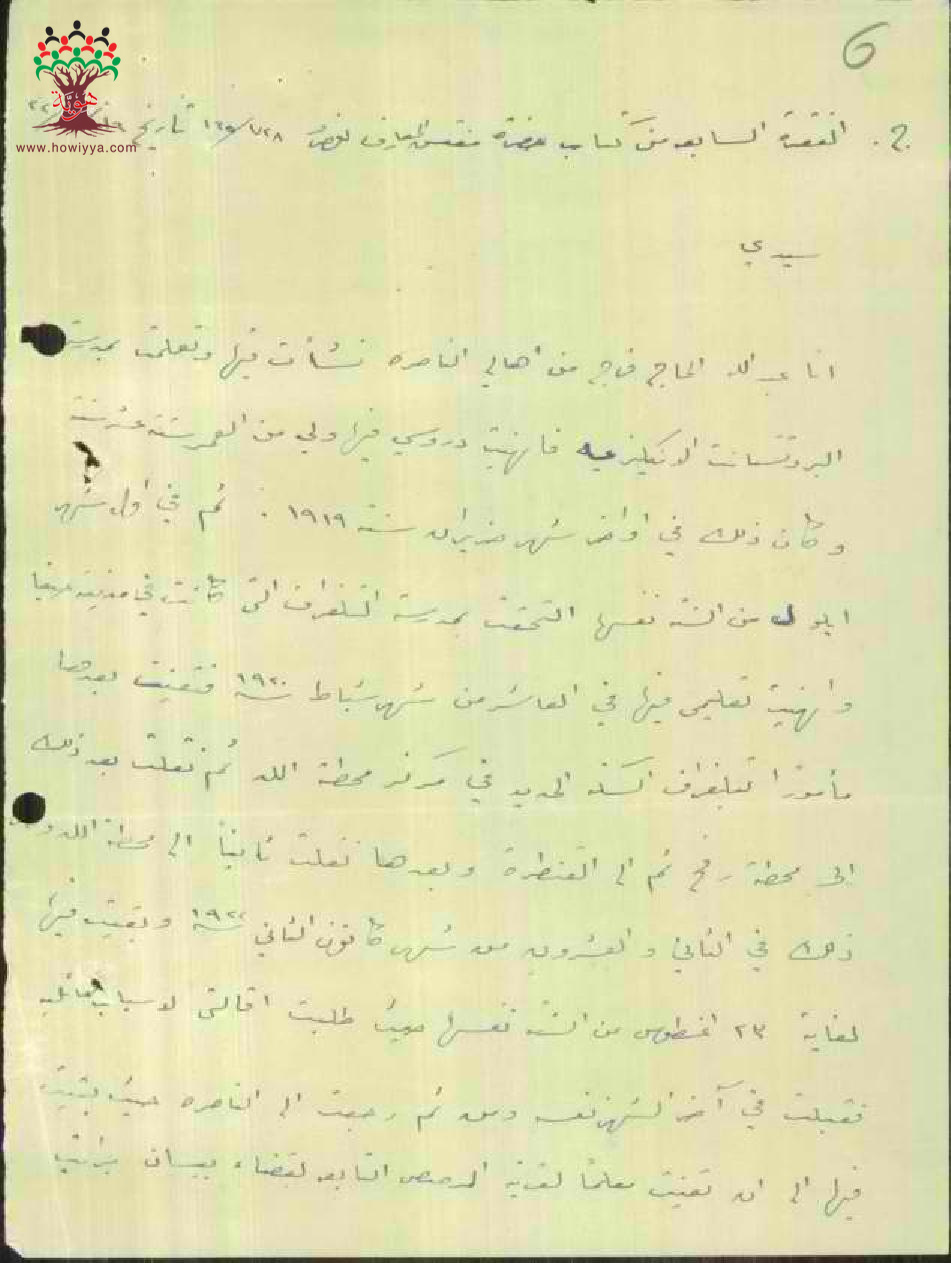 6
هوية
www.howiyya.com
ج. الفقرة السابعه من كتاب حضرة مفتش المعارف تاريخ
سيدي
انا عبد الله الحاج فرج من اهالي الناصره نشأت فيها وتعلمت بمدرسة
البروتستانت الانكليزيه فانهيت دروسي فيها ولي من العمر ستة عشر سنة
وكان ذلك في اواخر شهر حزيران سنة ١٩١٩ . ثم في اول شهر
ايلول من السنة نفسها التحقت بمدرسة التلغراف التي كانت في مدينة حيفا
وأنهيت تعليمي فيها في العاشر من شهر شباط سنة ١٩٢٠ فتعينت بعدها
مأمورا لتلغراف السكة الحديد في مركز محطة اللد ثم نقلت بعد ذلك
الى محطة رفح ثم الى القنطرة وبعدها نقلت ثانياً الى محطة اللد و
ذلك في الثاني والعشرين من شهر كانون الثاني سنة ١٩٢٢ وبقيت فيها
لغاية ٢٣ اغسطوس من السنة نفسها حيث طلبت اقالتي لاسباب عائليه
فقبلت في آخر الشهر نفسه ومن ثم رجعت الى الناصره حيث بقيت
فيها الى ان تعينت معلماً لقرية المرصص التابعه لقضاء بيسان براتب